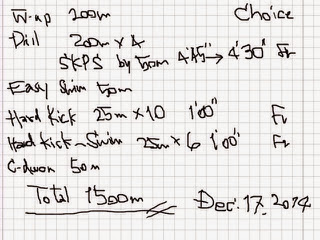 W-up 200m Choice
Drill 200m x 4
SKPS by 50m 4'45"→4'30" Fr
Easy Swim 50m
Hard Kick 25m x 10 1'00" Fr
Hard Kick~Swim 25m x 6 1'00" Fr
C-dwon 50m
Total 1500m Dec. 17. 2014